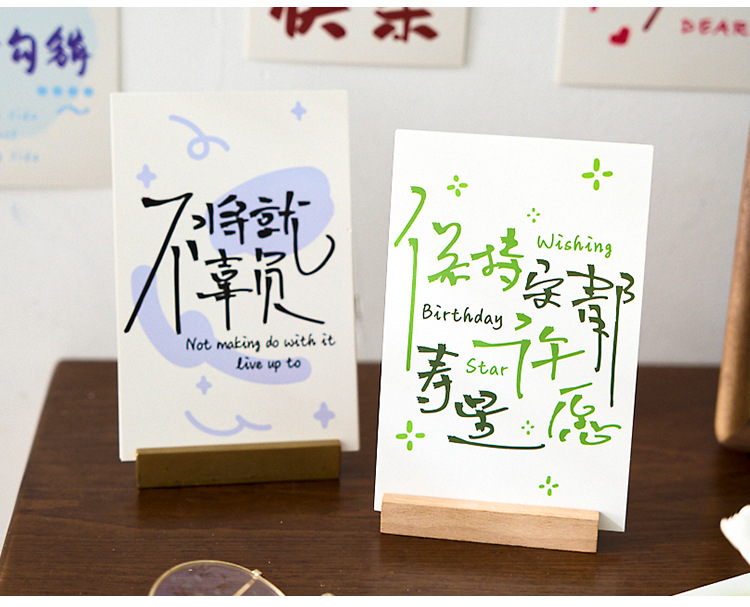 不将就
辜负
Not making do with it
live up to
保持
Wishing
安静
Birthday
许愿
Star
寿星
快乐
DEAR